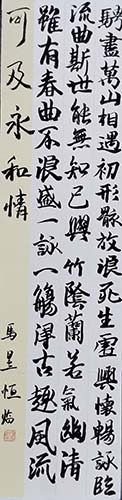 騁盡萬山相遇初形骸放浪死生虛興懷暢詠臨
流曲斯世能無知已興竹陰蘭若氣幽清
雖有春曲不浪盛一詠一觴渾古趣風流
可及永和情
馬昱恒臨